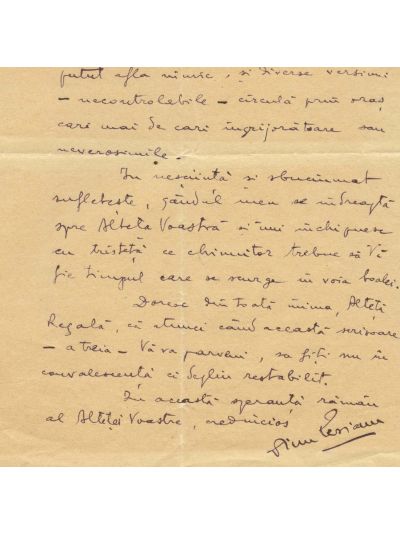 putut afla nimic, și diverse versiuni
– necontrolabile – circulă prin oraș
cari mai de cari îngrijorătoare sau
neverosimile.
In nesciință si sbuciumat
sufletește, gândul meu se îndreaptă
spre Alteța Voastră si'mi închipuesc
cu tristeță ce chinuitor trebue să Vă
fie timpul care se scurge in voia boalei.
Doresc din toată inima, Alteță
Regală, că atunci când această scrisoare
– a treia – Vă va parveni, sa fiți nu in
convalescență ci deplin restabilit.
In această speranță rămân
al Alteței Voastre, credincios